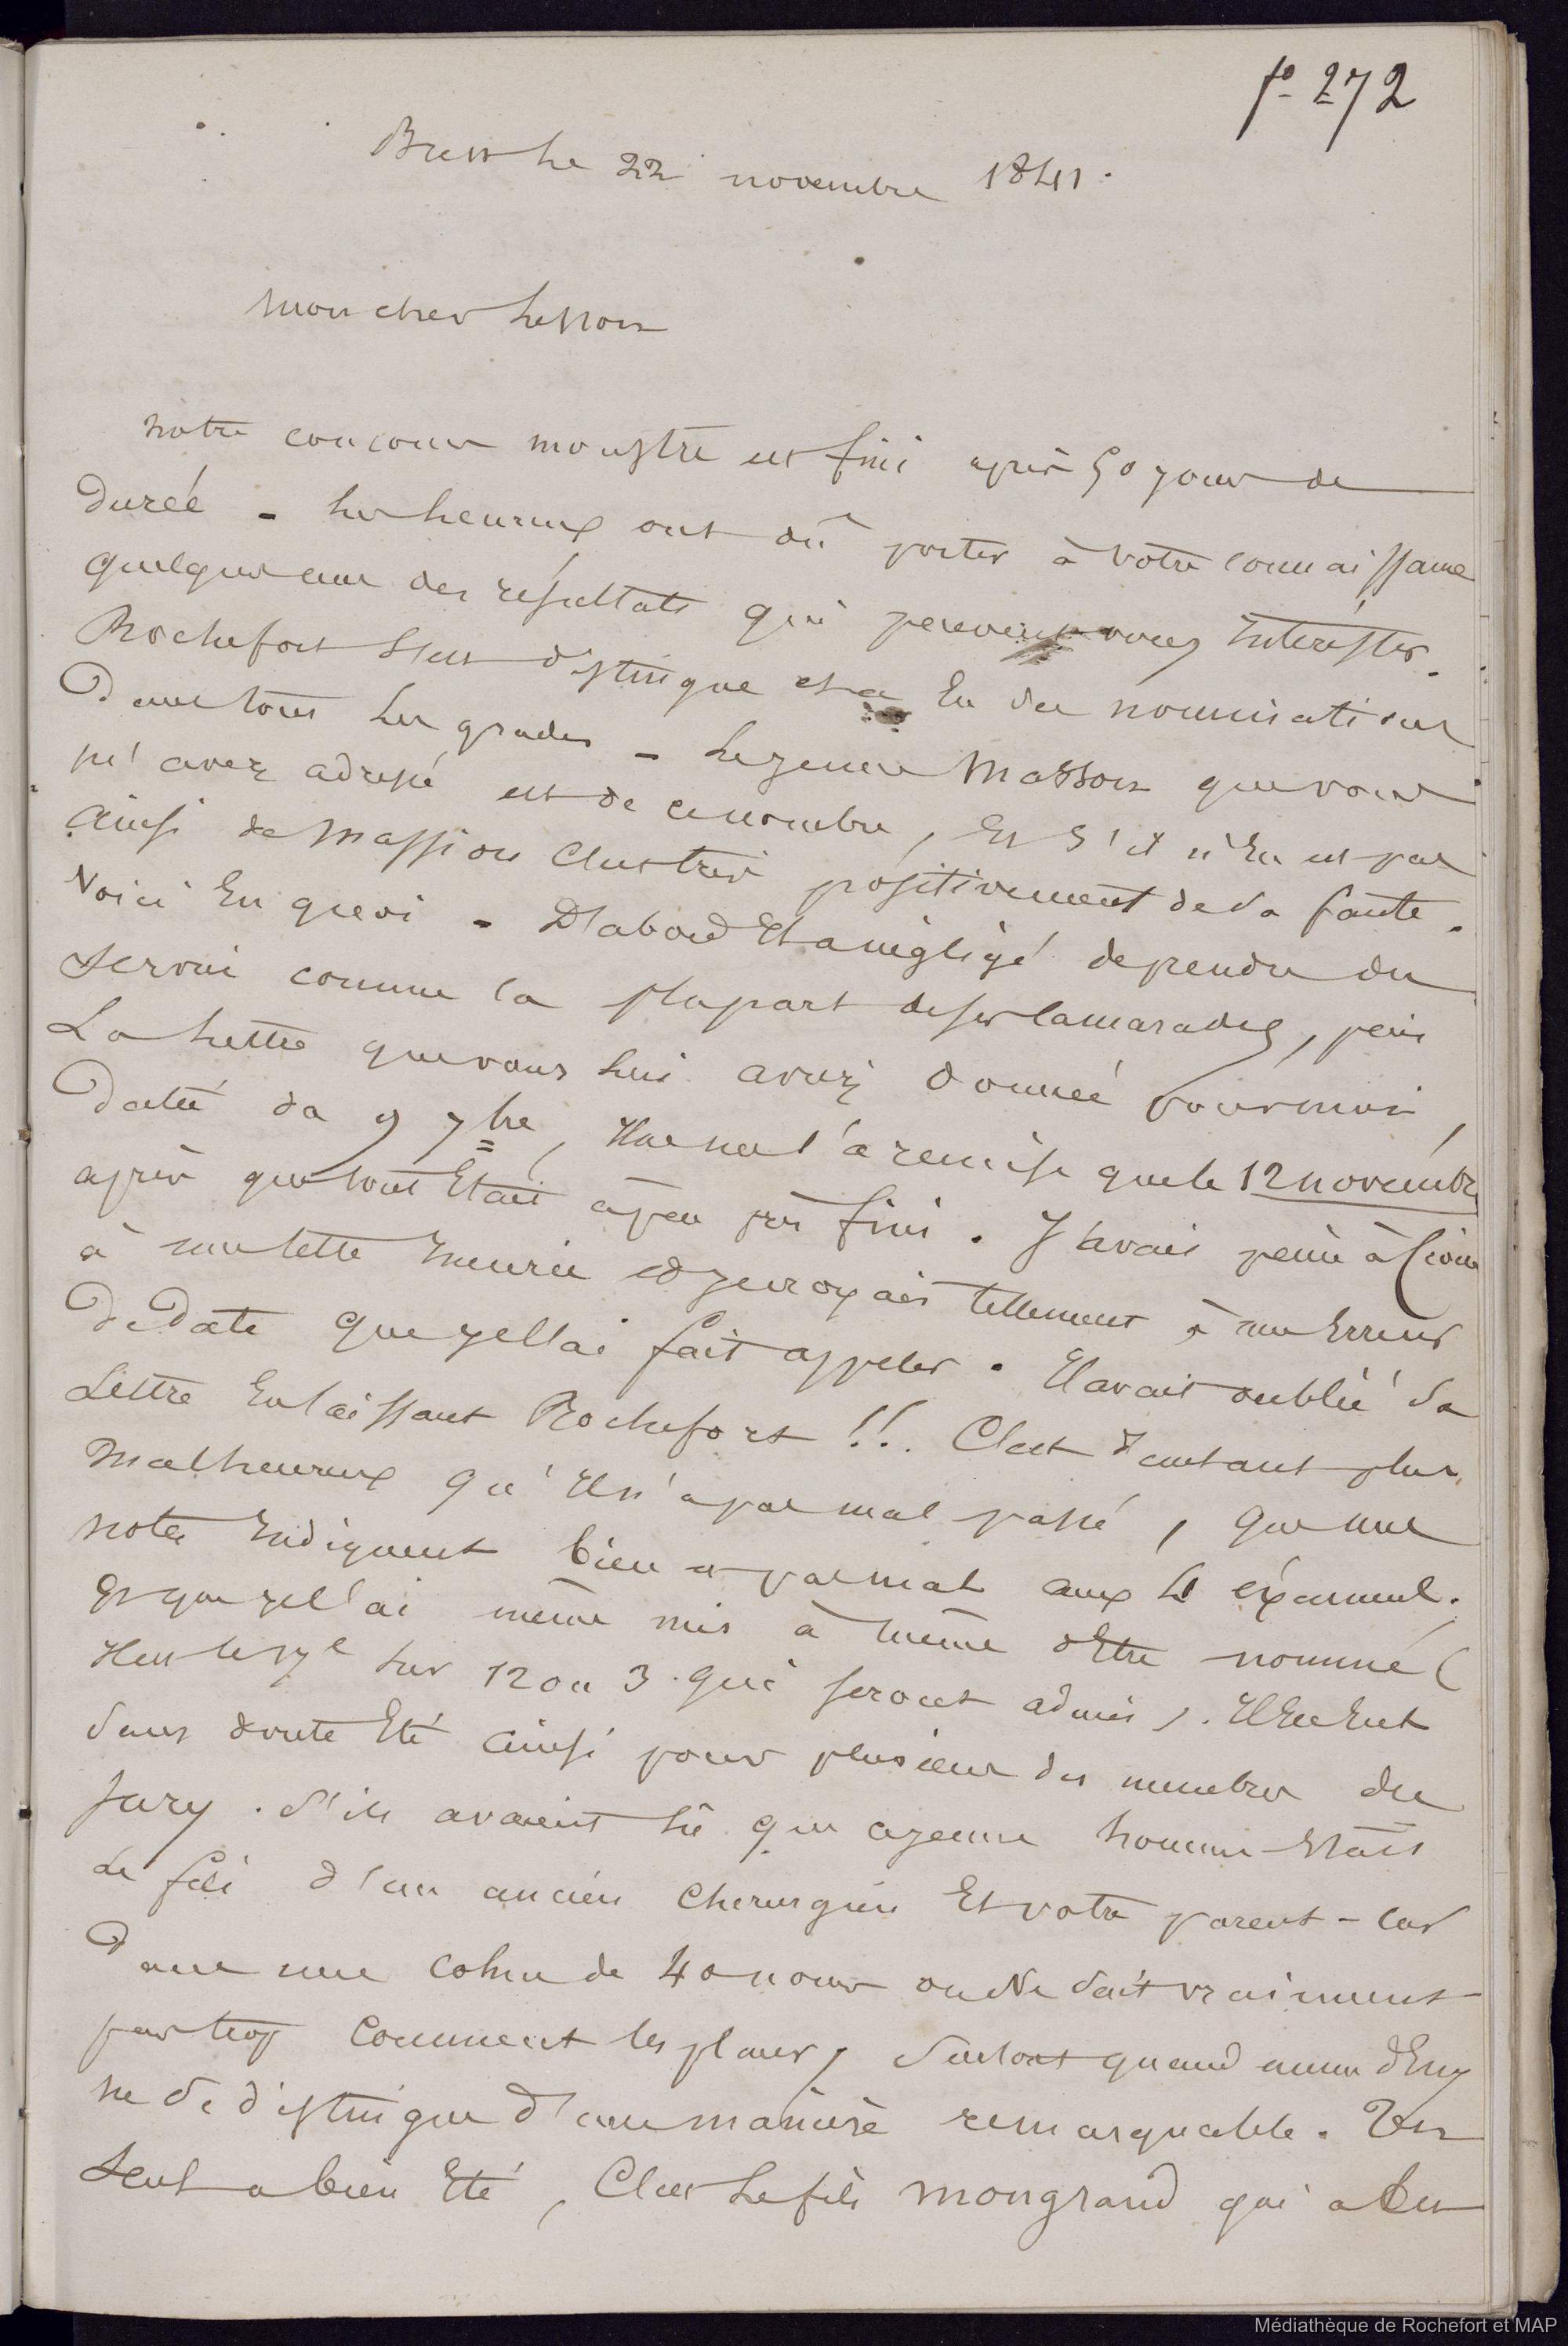 fo 272
Brest le 22 novembre 1841.
Mon cher Lesson
Notre concours monstre est fini après 50 jours de
durée - les heureux ont dû porter à votre connaissance
quelques uns des résultats qui peuvent vous intéresser.
Rochefort s'est distingué et a eu des nominations
dans tous les grades - le jeune Masson que vous
m'avez adressé est de ce nombre, et s'il n'en est pas
ainsi de Massiou c'est très positivement de sa faute.
Voici en quoi - D'abord il a négligé de prendre du
service comme la plupart de ses camarades, puis
la lettre que vous lui avez donnée pour moi,
datée du 9 7bre, il ne me l'a remise que le 12 novembre
après que tout était à peu près fini. J'avais peine à croire
à une telle incurie et je croyais tellement à une erreur
de date que je l'ai fait appeler. Il avait oublié sa
lettre en laissant Rochefort !!. C'est d'autant plus
malheureux qu'il n'a pas mal passé, que mes
notes indiquent bien et pas mal aux 4 examens.
Et que je l'ai même mis à même d'être nommé (
il est le 17e sur 12 ou 3 qui seront admis). Il en eut
sans doute été ainsi pour plusieurs des membres du
jury. s'ils avaient su que ce jeune homme était
le fils d'un ancien chirurgien et votre parent - car
dans une cohue de 40 noms on ne sait vraiment
pas trop comment les placer, surtout quand aucun d'eux
ne se distingue d'une manière remarquable. Un
seul a bien été, c'est le fils Mongrand qui a eu
Médiathèque de Rochefort et MAP